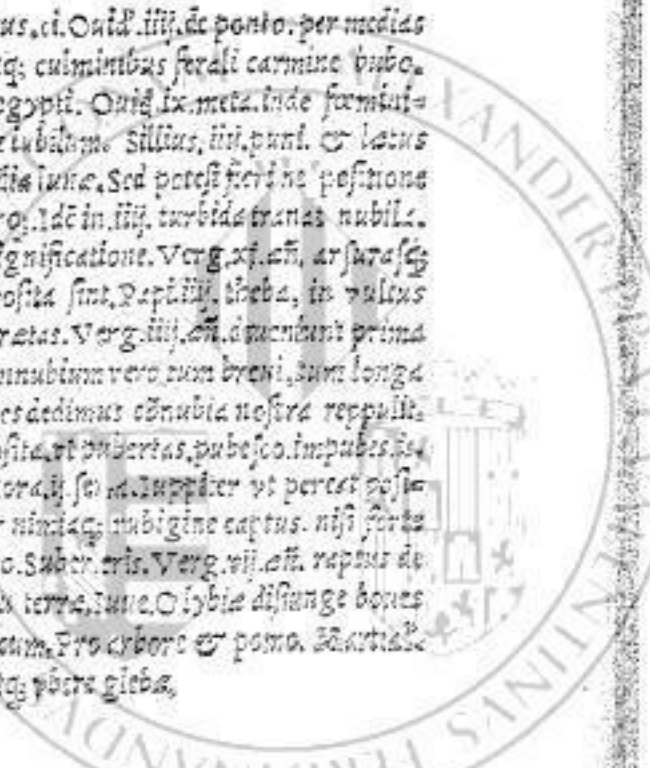 us. ci. Ouid'. iiij. de ponto. per medias
q; culminibus ferali carmine bubo.
egypti. Ouid. ix. meta. inde fœmini=
iubilum. Sillius. iiij. puni. & lætus
lunæ. Sed potest fieri ne positione
ro; Idē in. iiij. turbida tranat nubila.
ignificatione. Verg. xi. æn. arsurasq;
osita sint. Papi. iiij. theba. in vultus
ætas. Verg. iiij. æn. aduenient prima
nnubium vero tum breui, tum longa
es dedimus cōnubia nostra reppulit.
sita, vt pubertas, pubesco. impubes.
ora. ij. Iuppiter vt pereat
nimiaq; rubigine captus. nisi forte
o. Suber. eris. Verg. vij. æn. raptus de
terra. Iuue. O lybiæ disiunge boues
um. Pro arbore & pomo. Martialis
q; vbere glebæ.
XANDER
ENTINVS FERDINANDV